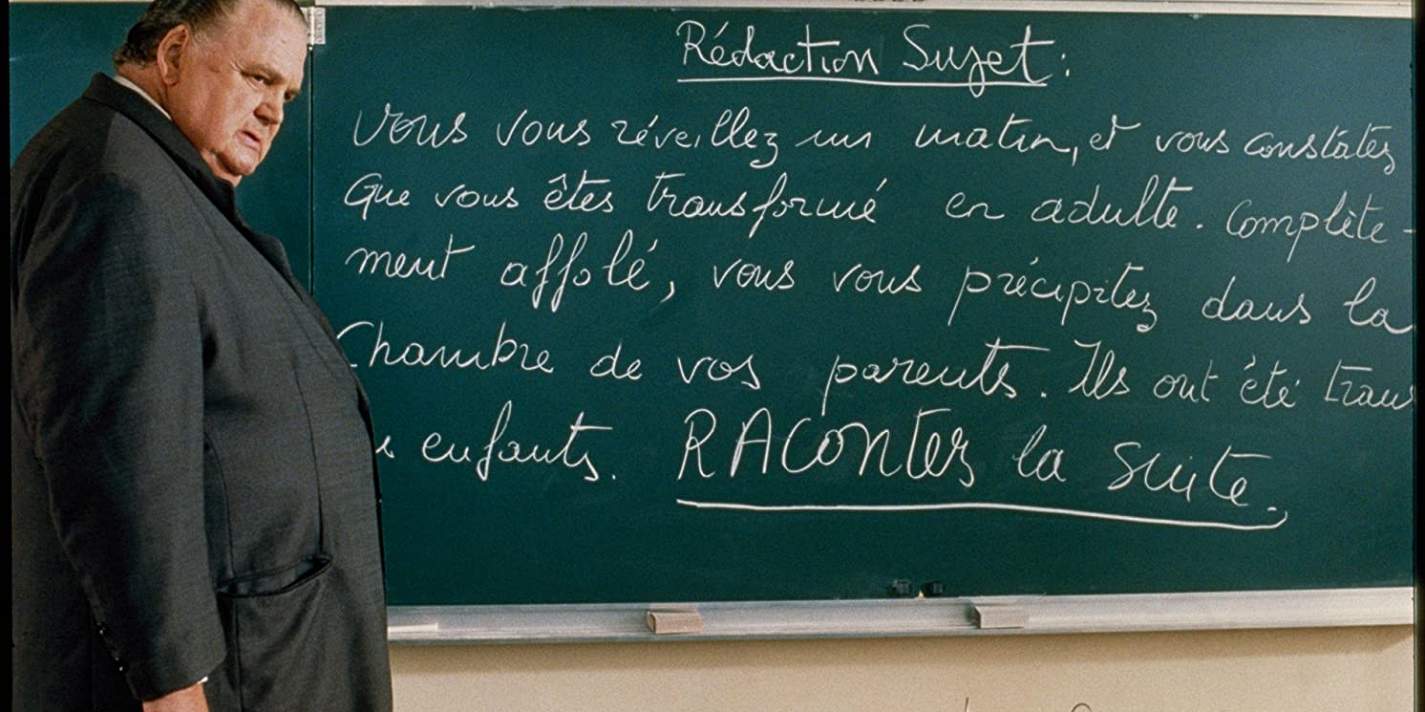 Rédaction Sujet:
Vous vous réveillez un matin, et vous constatez
Que vous êtes transformé en adulte. Complète-
ment affolé, vous vous précipitez dans la
Chambre de vos parents. Ils ont été trans
enfants. RACONTEZ la suite.